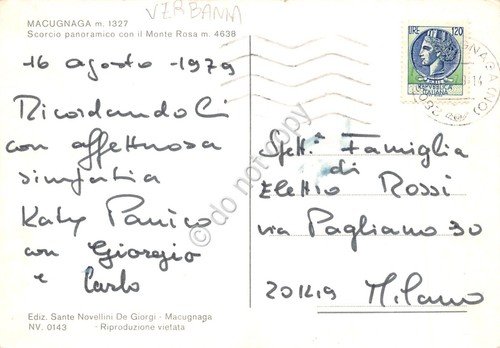 VERBANIA
MACUGNAGA m. 1327
Scorcio panoramico con il Monte Rosa m. 4638
LIRE 120
16 agosto - 1979
RicordandoVi
con affettuosa
simpatia
Katy Panico
con Giorgio
e Carlo
Spett.le Famiglia
di
Elettio Rossi
via Pagliano 30
20149 Milano
Ediz. Sante Novellini De Giorgi - Macugnaga
NV. 0143 - Riproduzione vietata
do not copy